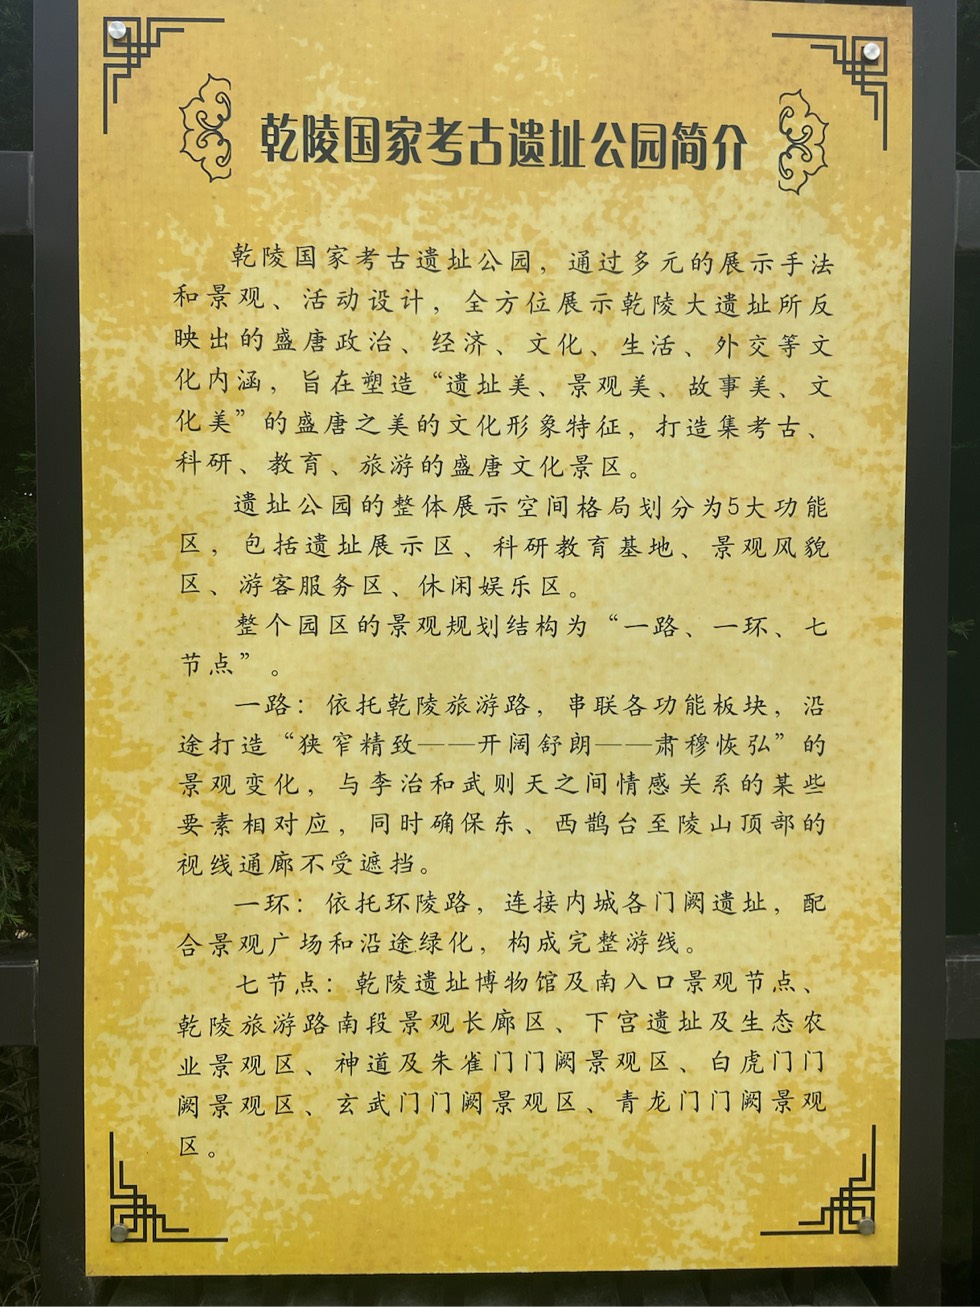 乾陵国家考古遗址公园简介
乾陵国家考古遗址公园，通过多元的展示手法
和景观、活动设计，全方位展示乾陵大遗址所反
映出的盛唐政治、经济、文化、生活、外交等文
化内涵，旨在塑造“遗址美、景观美、故事美、文
化美”的盛唐之美的文化形象特征，打造集考古、
科研、教育、旅游的盛唐文化景区。
遗址公园的整体展示空间格局划分为5大功能
区，包括遗址展示区、科研教育基地、景观风貌
区、游客服务区、休闲娱乐区。
整个园区的景观规划结构为“一路、一环、七
节点”。
一路：依托乾陵旅游路，串联各功能板块，沿
途打造“狭窄精致——开阔舒朗——肃穆恢弘”的
景观变化，与李治和武则天之间情感关系的某些
要素相对应，同时确保东、西鹊台至陵山顶部的
视线通廊不受遮挡。
一环：依托环陵路，连接内城各门阙遗址，配
合景观广场和沿途绿化，构成完整游线。
七节点：乾陵遗址博物馆及南入口景观节点、
乾陵旅游路南段景观长廊区、下宫遗址及生态农
业景观区、神道及朱雀门门阙景观区、白虎门门
阙景观区、玄武门门阙景观区、青龙门门阙景观
区。